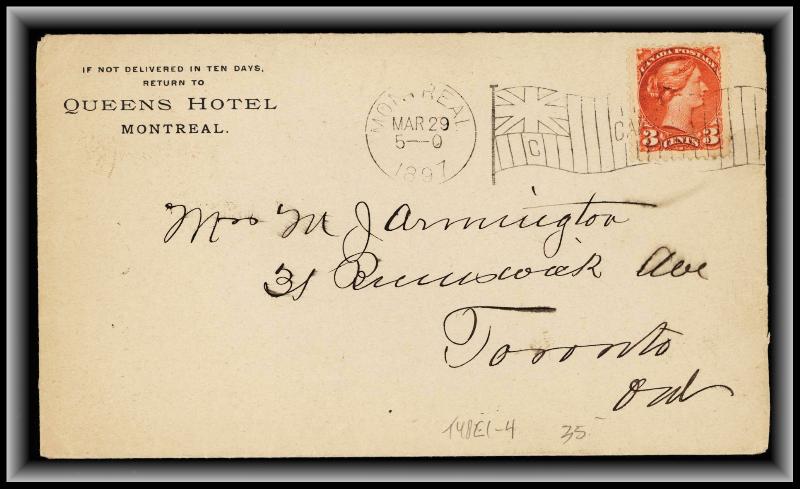 IF NOT DELIVERED IN TEN DAYS,
RETURN TO
QUEENS HOTEL
MONTREAL.
MONTREAL
MAR 29
5—0
1897
C
CANADA POSTAGE
3 CENTS 3
Mrs M J Armington
31 Brunswick Ave
Toronto
Ont
35